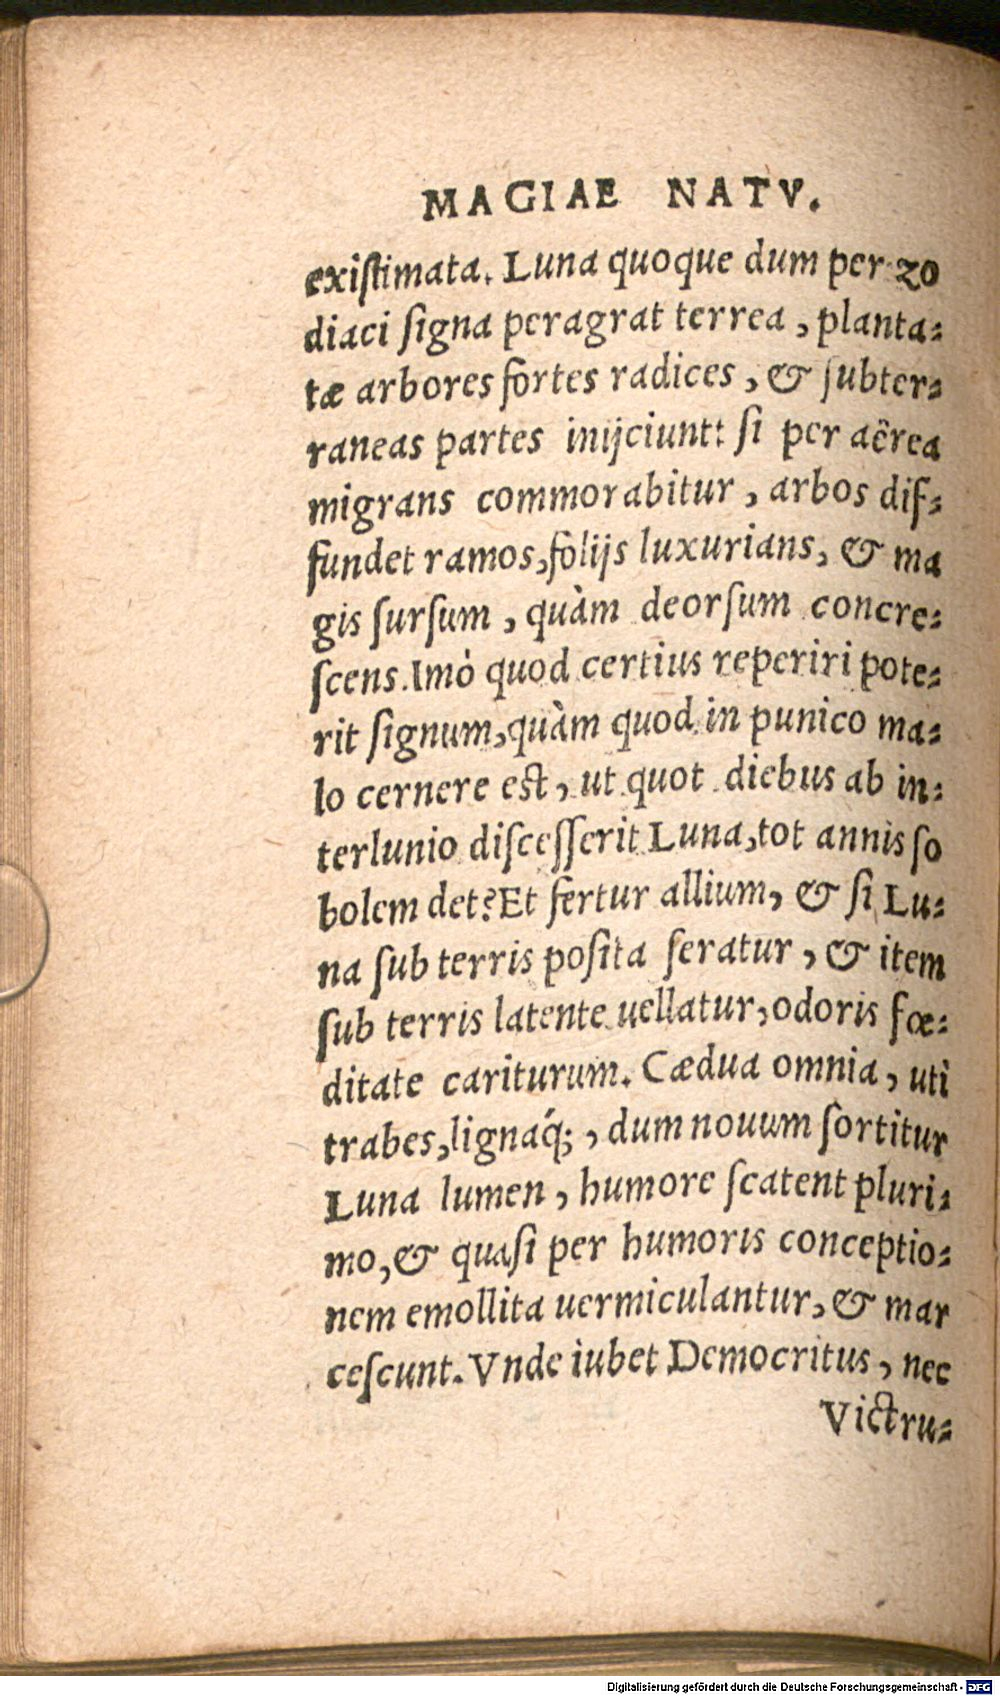 MAGIAE NATV.
existimata. Luna quoque dum per zo
diaci signa peragrat terrea, planta-
tæ arbores fortes radices, & subter-
raneas partes inijciunt: si per aërea
migrans commorabitur, arbos dif-
fundet ramos, folijs luxurians, & ma
gis sursum, quàm deorsum concre-
scens. Imò quod certius reperiri pote-
rit signum, quàm quod in punico ma-
lo cernere est, ut quot diebus ab in-
terlunio discesserit Luna, tot annis so
bolem det? Et fertur allium, & si Lu-
na sub terris posita seratur, & item
sub terris latente uellatur, odoris fœ-
ditate cariturum. Cædua omnia, uti
trabes, lignaq́;, dum nouum sortitur
Luna lumen, humore scatent pluri-
mo, & quasi per humoris conceptio-
nem emollita uermiculantur, & mar
cescunt. Vnde iubet Democritus, nec
Victru-
Digitalisierung gefördert durch die Deutsche Forschungsgemeinschaft - DFG